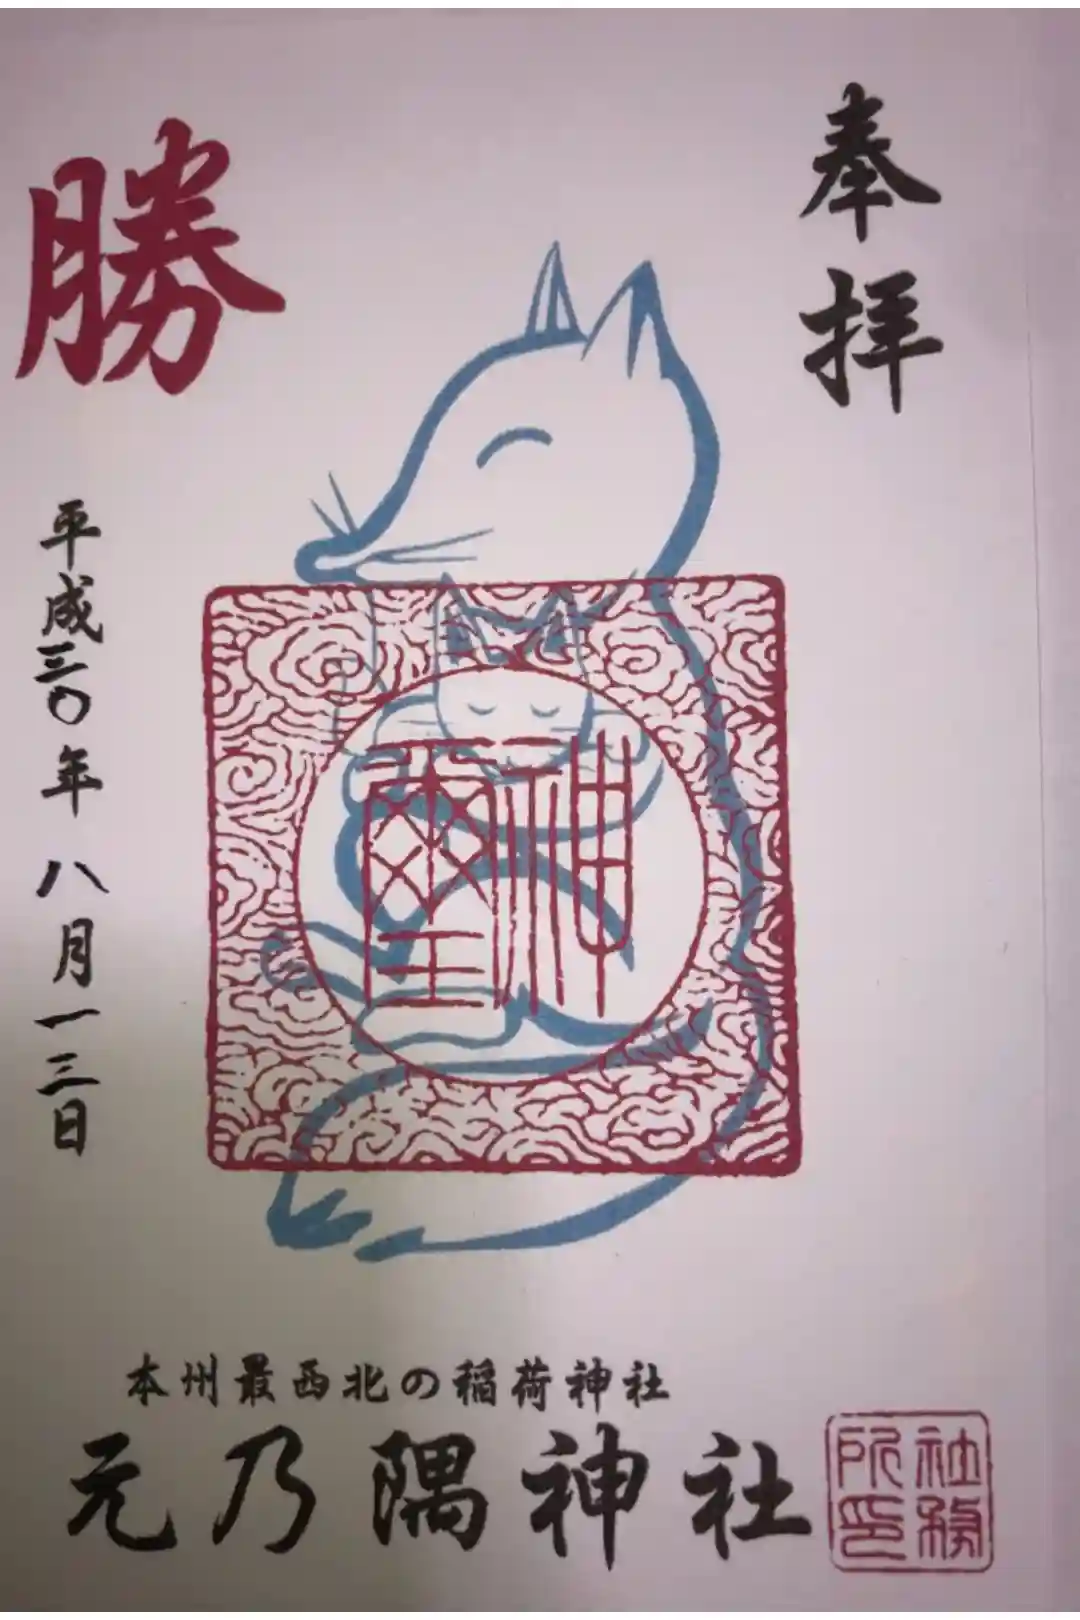 奉拝
勝
平成三〇年八月一三日
神璽
本州最西北の稲荷神社
元乃隅神社
社務所印